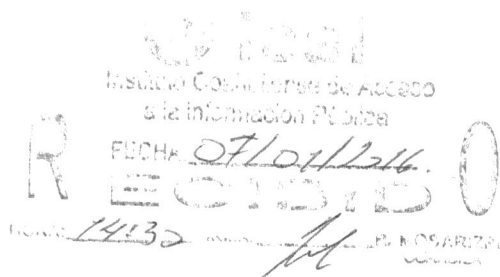 icai
Instituto Coahuilense de Acceso
a la Información Pública
FECHA 07/01/2016.
RECIBIDO
HORA 14:32